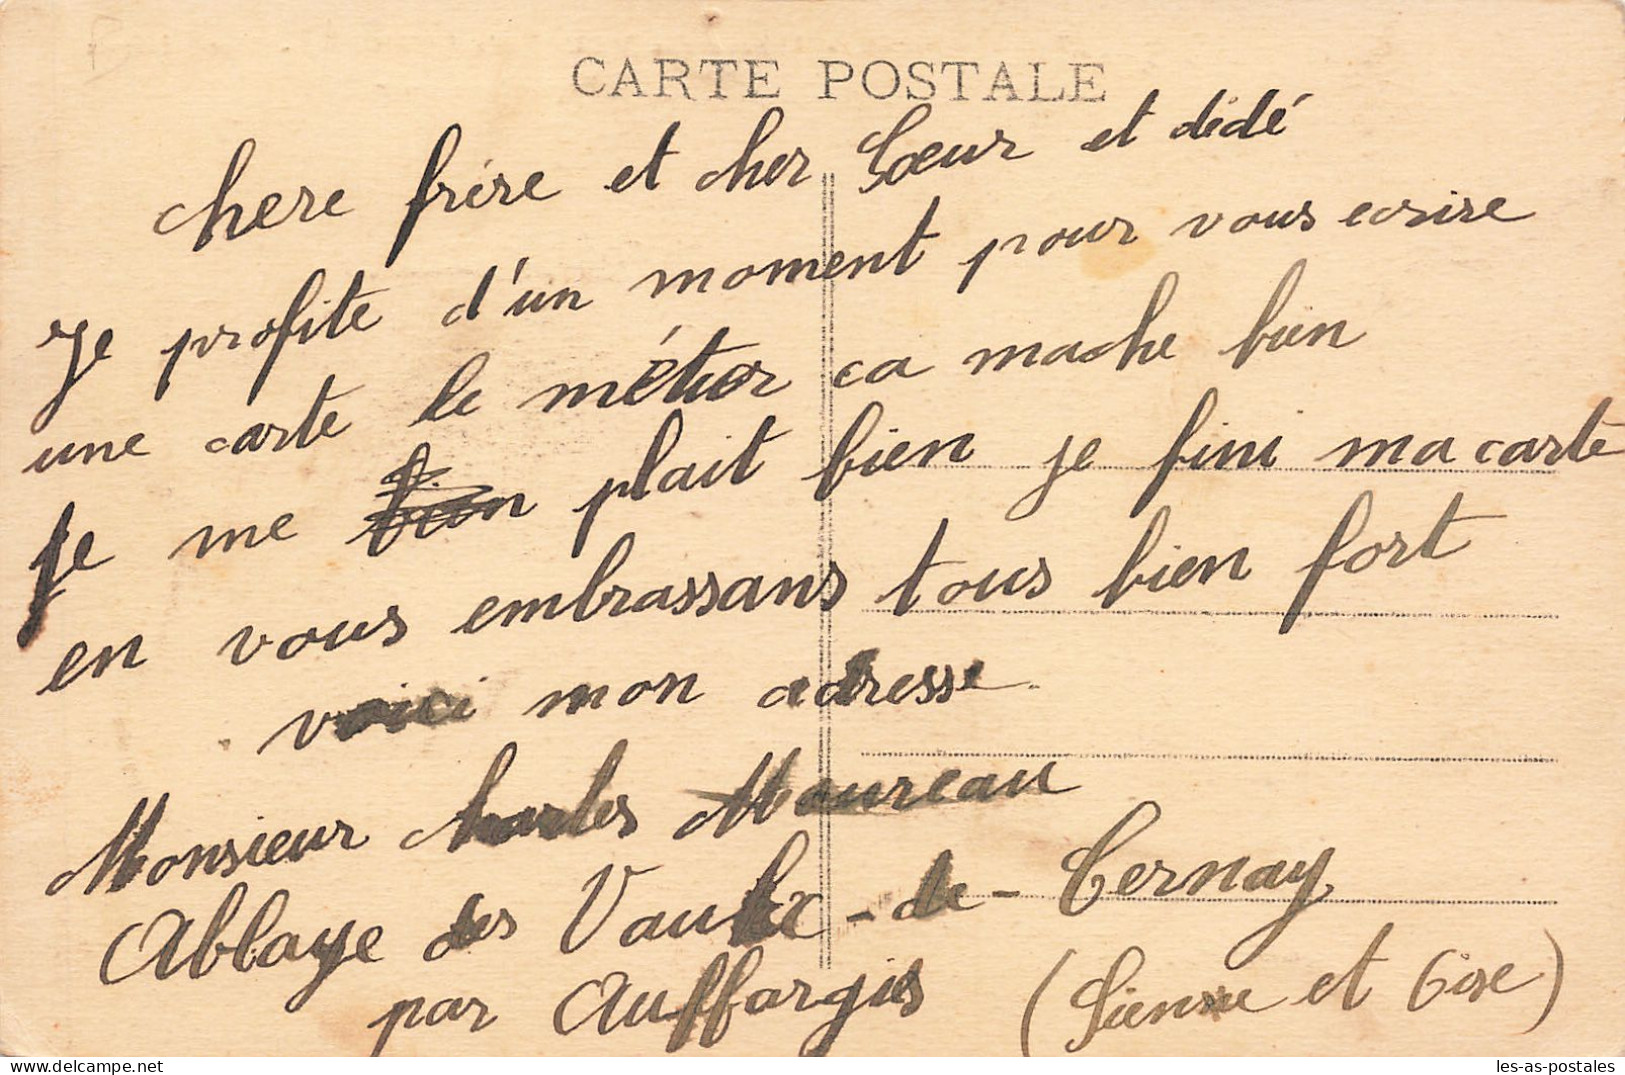 CARTE POSTALE
chere frère et cher Sœur et dédé
Je profite d'un moment pour vous ecrire
une carte le métier ca mache bien
je me bien plait bien je fini ma carte
en vous embrassans tous bien fort
voici mon adresse
Monsieur Charles Moureau
Abbaye des Vaulx-de-Cernay
par Auffargis (Sienne et Oise)
les-as-postales